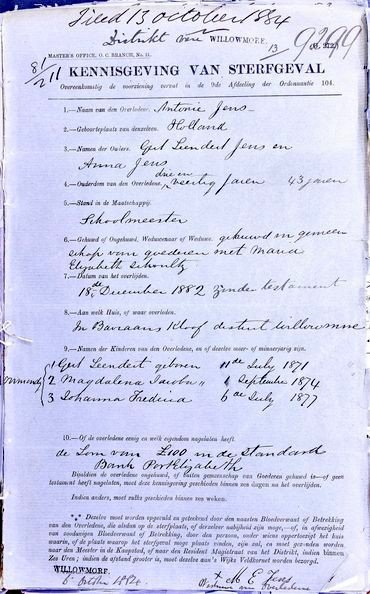 Filed 13 October 1884
Distrikt van WILLOWMORE.
13
9299
MASTER'S OFFICE, O. C. BRANCH, No. 11.
8/2 11
KENNISGEVING VAN STERFGEVAL
Overeenkomstig de voorziening vervat in de 9de Afdeeling der Ordonnantie 104.
1.—Naam van den Overledene. Antonie Jens
2.—Geboorteplaats van denzelven. Holland
3.—Namen der Ouders. Gert Leendert Jens en
Anna Jens
4.—Ouderdom van den Overledene, drie en veertig Jaren 43 jaren
5.—Stand in de Maatschappij.
Schoolmeester
6.—Gehuwd of Ongehuwd, Weduwenaar of Weduwe. gehuwd in gemeen
schap van goederen met Maria
Elizabeth Schoultz
7.—Datum van het overlijden.
18de December 1882 zonder testament
8.—Aan welk Huis, of waar overleden.
In Baviaans Kloof distrikt Willowmore
9.—Namen der Kinderen van den Overledene, en of dezelve meer- of minderjarig zijn.
1 Gert Leendert geboren 11de July 1871
2 Magdalena Jacoba " 1 September 1874
3 Johanna Fredrica 6de July 1877
10.—Of de overledene eenig en welk eigendom nagelaten heeft.
de Som van £100 in de Standard
Bank Port Elizabeth
Bijaldien de overledene ongehuwd, of buiten gemeenschap van Goederen gehuwd is—of geen
testament heeft nagelaten, moet deze kennisgeving geschieden binnen zes dagen na het overlijden.
Indien anders, moet zulks geschieden binnen zes weken.
Deze moet worden opgevuld en geteekend door den naasten Bloedverwant of Betrekking
van den Overledene, die alsdan op de sterfplaats, of derzelver nabijheid zijn mogt,—of, in afwezigheid
van zoodanigen Bloedverwant of Betrekking, door den persoon, onder wiens oppertoezigt het huis
waarin, of de plaats waarop het sterfgeval mogt plaats vinden, zijn zal, en moet gezonden worden
naar den Meester in de Kaapstad, of naar den Resident Magistraat van het Distrikt, indien binnen
Zes Uren; indien de afstand grooter is, moet deze aan 's Wijks Veldkornet worden bezorgd.
WILLOWMORE,
6 October 1884
M E Jens
Weduwe van Overledene